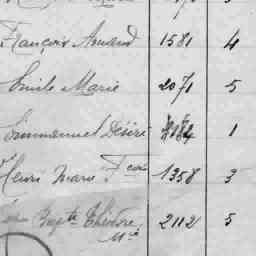 François Armand 1581 4
Emile Marie 2071 5
Emmanuel Désiré 1
Henri Marie Fcois 1358 3
Bapte Théodore 2112 5
Mie